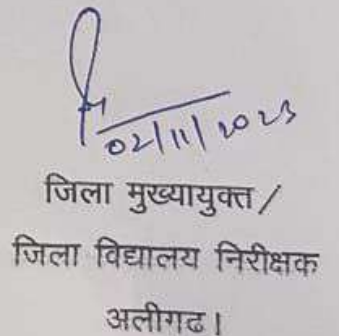 02/11/2023
जिला मुख्यायुक्त /
जिला विद्यालय निरीक्षक
अलीगढ।